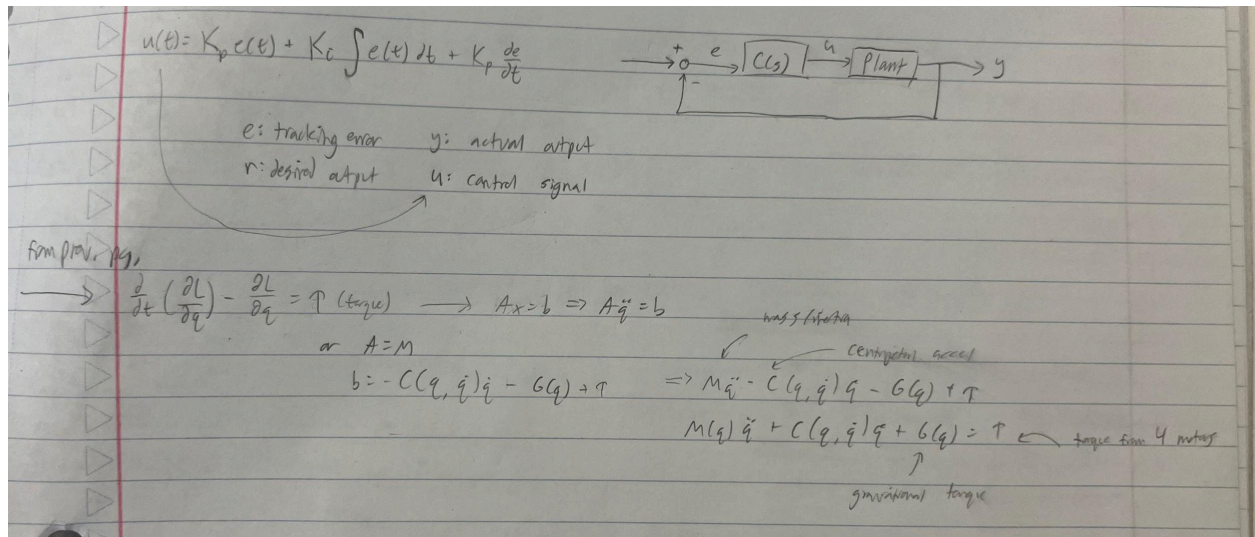 u(t) = K_p e(t) + K_i ∫ e(t) dt + K_p de/dt
+ e C(s) u Plant y
-
e: tracking error y: actual output
r: desired output u: control signal
from prev. pg.
∂/∂t (∂L/∂q̇) - ∂L/∂q = τ (torque) → Ax = b => Aq̈ = b
or A = M
centripetal accel
b = -C(q, q̇)q̇ - G(q) + τ => Mq̈ - C(q, q̇)q̇ - G(q) + τ
M(q)q̈ + C(q, q̇)q̇ + G(q) = τ ← torque from 4 motors
gravitational torque